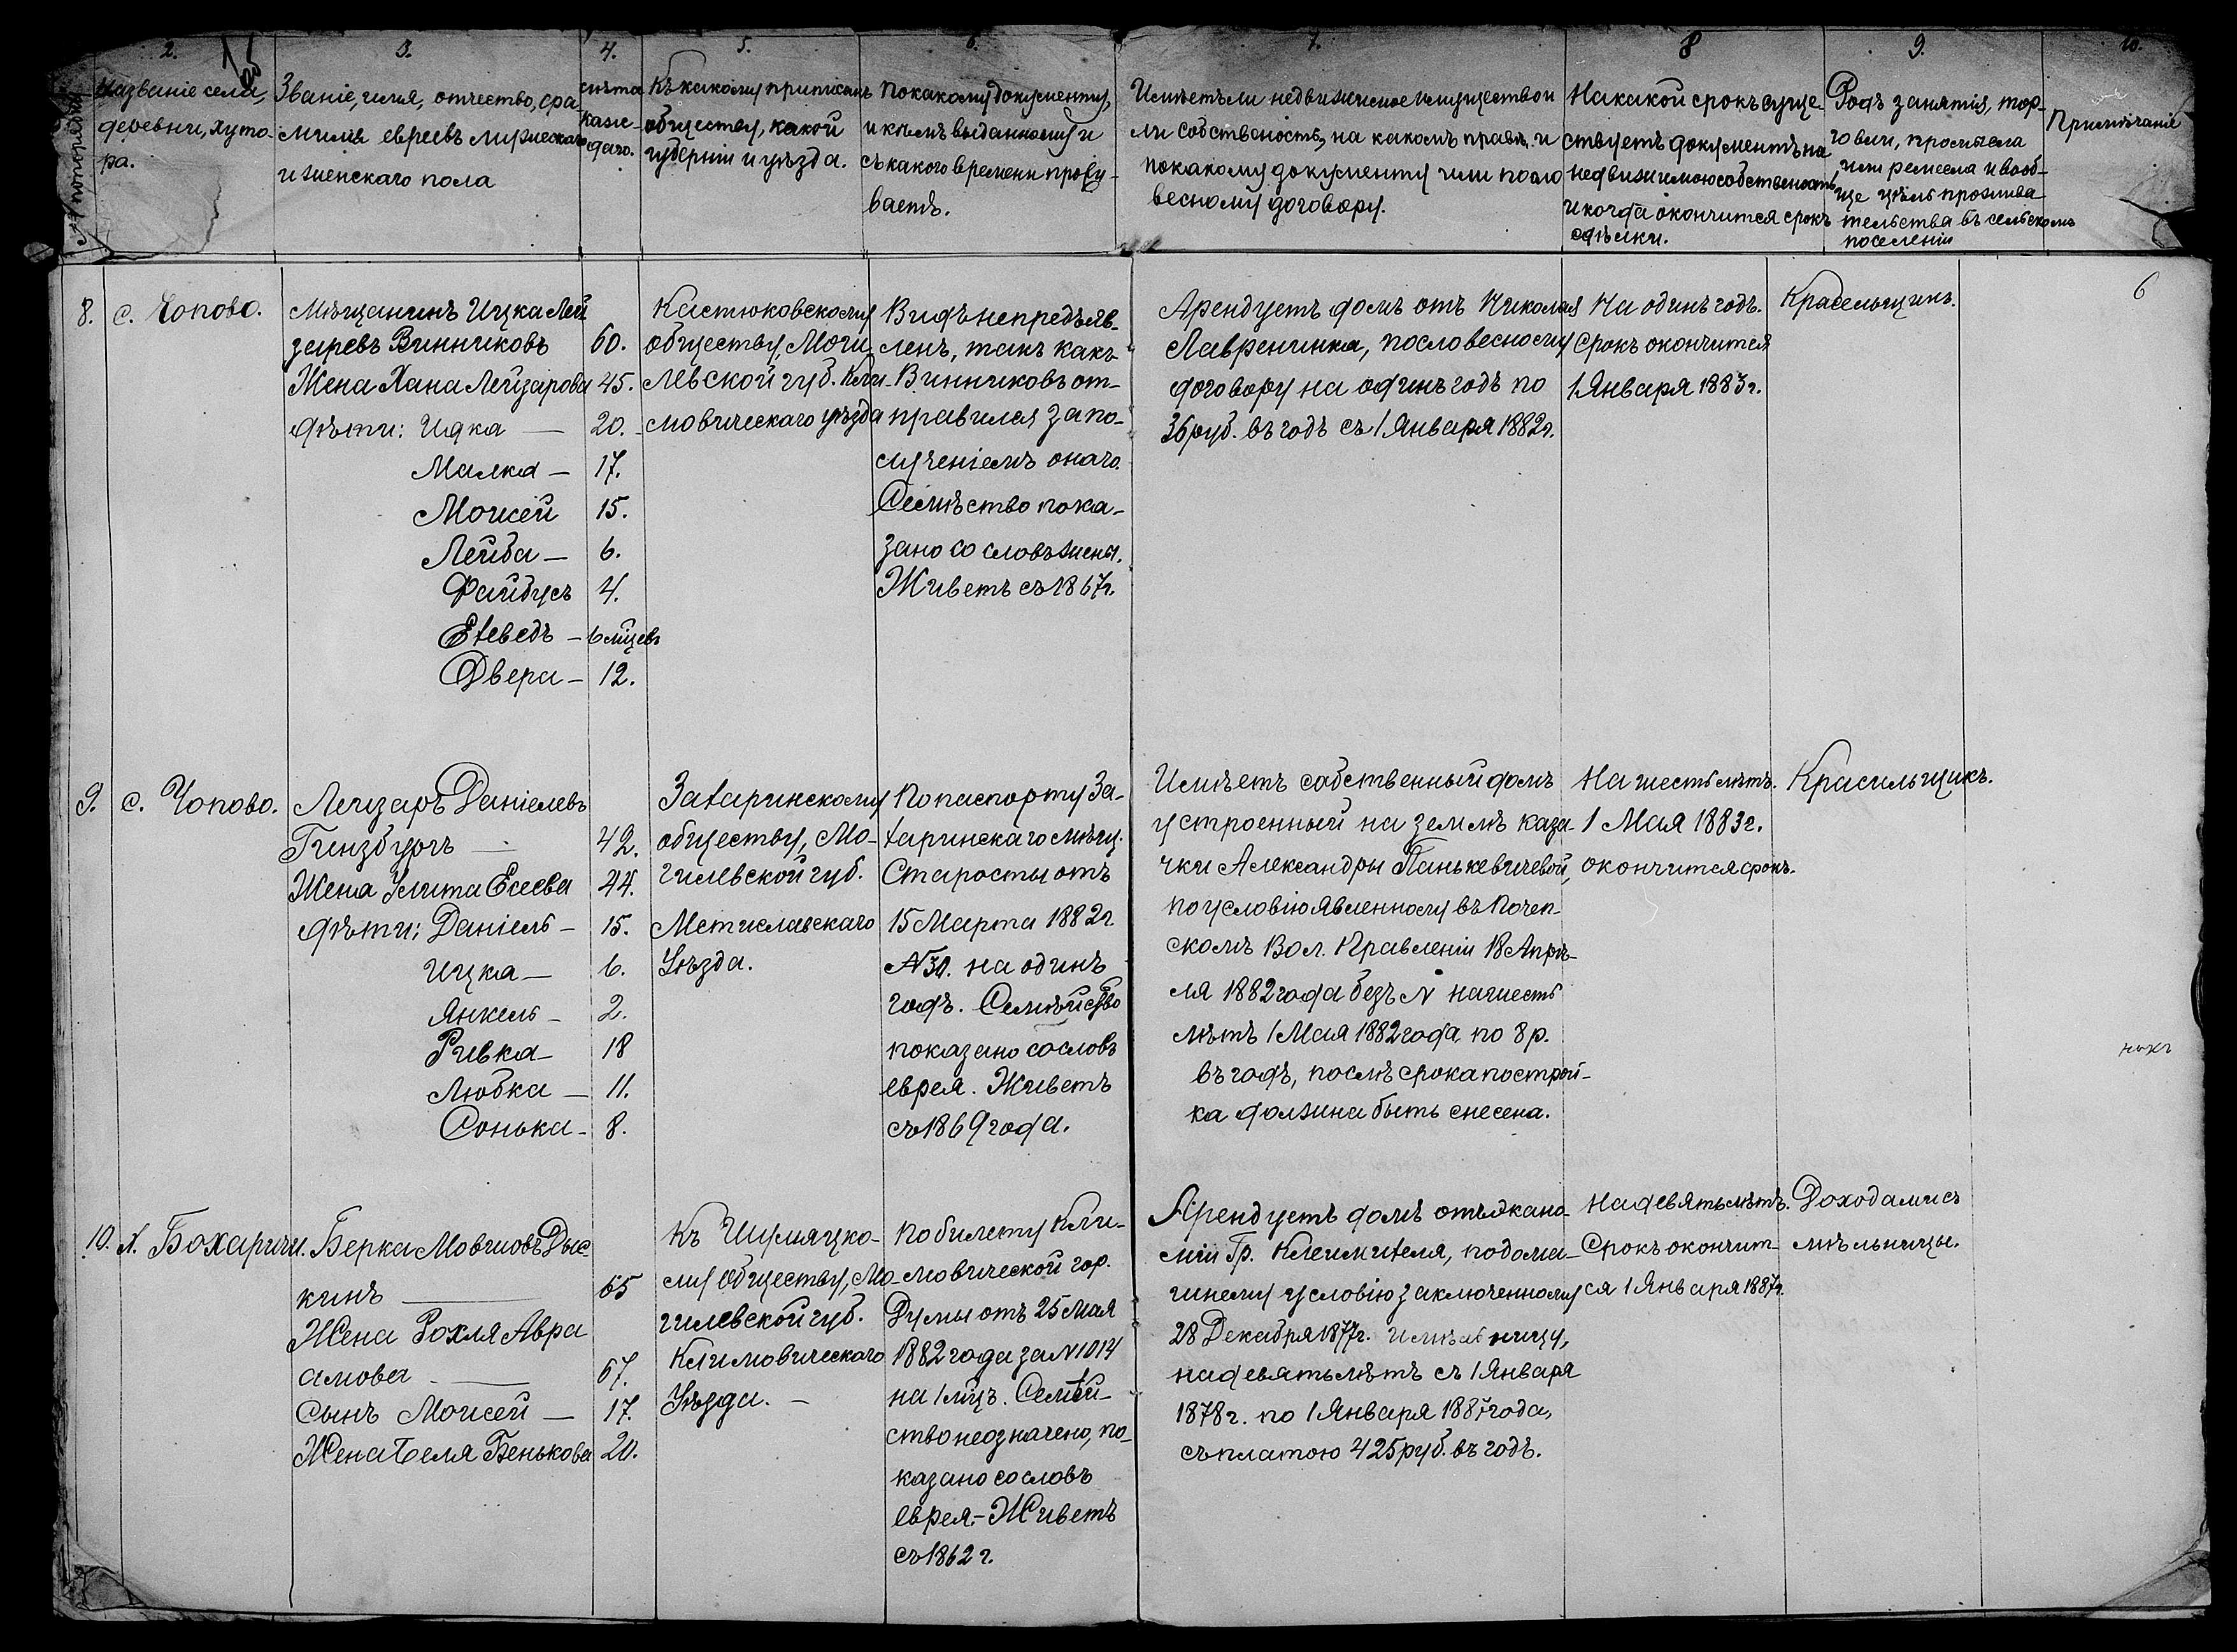 2.
3.
4.
5.
6.
7.
8
9.
10.
№ по порядку
Названіе села,
деревни, хуто-
ра.
Званіе, имя, отчество, фа-
милія евреевъ мужескаго
и женскаго пола
Лѣта
каж-
даго.
Къ какому приписанъ
обществу, какой
губерніи и уѣзда.
По какому документу,
и кѣмъ выданному и
съ какого времени прожи-
ваетъ.
Имѣетъ ли недвижимое имущество и
ли собственость, на какомъ правѣ и
по какому документу или по сло
весному договору.
На какой срокъ суще-
ствуетъ документъ на
недвижимою собственость
и когда окончится срокъ
сдѣлки.
Родъ занятія, тор-
говли, промысла
или ремесла и вооб-
ще цѣль прожива-
тельства въ сельскомъ
поселеніи
Примѣчаніе
6
8.
с. Чопово.
Мѣщанинъ Ицка Лей
зеревъ Винниковъ
60.
Жена Хана Лейзарова
45.
дѣти: Идка —
20.
Малка —
17.
Моисей
15.
Лейба —
6.
Файбусъ
4.
6 мѣцевъ
Двера —
12.
Кастюковскому
обществу, Моги
левской губ. Кли-
мовическаго уѣзда
Видъ непредъяв-
ленъ, такъ какъ
Винниковъ от-
правился за по-
лученіемъ онаго.
Семѣство пока-
зано со словъ жены.
Живетъ съ 1867г.
Арендуетъ домъ отъ Николая
Лавреншка, по словесному
договору на одинъ годъ по
36 руб. въ годъ съ 1 Января 1882г.
На одинъ годъ.
Срокъ окончится
1 Января 1883г.
Красельщикъ.
9.
с. Чопово.
Лейзаръ Даніелевъ
Гинзбургъ —
42.
Жена Улита Есеева
44.
дѣти: Даніель —
15.
Ицка —
6.
Янкель —
2.
Ривка —
18
Любка —
11.
Сонька —
8.
Захаринскому
обществу, Мо-
гилевской губ.
Мстиславскаго
Уѣзда.
По паспорту За-
харинскаго мѣщ.
Старосты отъ
15 Марта 1882г.
№ 30. на одинъ
годъ. Семѣйство
показано со словъ
еврея. Живетъ
съ 1869 года.
Имѣетъ собственный домъ
устроенный на землѣ каза-
чки Александры Панькевичевой,
по условію явленному въ Почеп-
скомъ Вол. Правленіи 18 Апрѣ-
ля 1882 года безъ № на шесть
лѣтъ 1 Мая 1882 года по 8 р.
въ годъ, послѣ срока построй-
ка должна быть снесена.
На шесть лѣтъ.
1 Мая 1883г.
окончится срокъ.
Красильщикъ.
10.
х. Бохаричи.
Берка Мовшовъ Дыс
кинъ —
65
Жена Рохля Авра
амова —
67.
Сынъ Моисей —
17.
Жена Беля Бенькова
20.
Къ Шумяцко-
му обществу, Мо-
гилевской губ.
Климовическаго
Уѣзда. —
По билету Кли-
мовической гор.
Думы отъ 25 Мая
1882 года за № 1014
на 1 мѣцъ. Семѣй-
ство неозначено, по-
казано со словъ
еврея. — Живетъ
съ 1862 г.
Арендуетъ домъ отъ экано-
міи Гр. Клеймихеля, по дома-
шнему условію заключенному
28 Декабря 1877г. и мѣльницу,
на девять лѣтъ съ 1 Января
1878г. по 1 Января 1887 года,
съ платою 425 руб. въ годъ.
На девять лѣтъ.
Срокъ окончит-
ся 1 Января 1887г.
Доходами съ
мѣльницы.